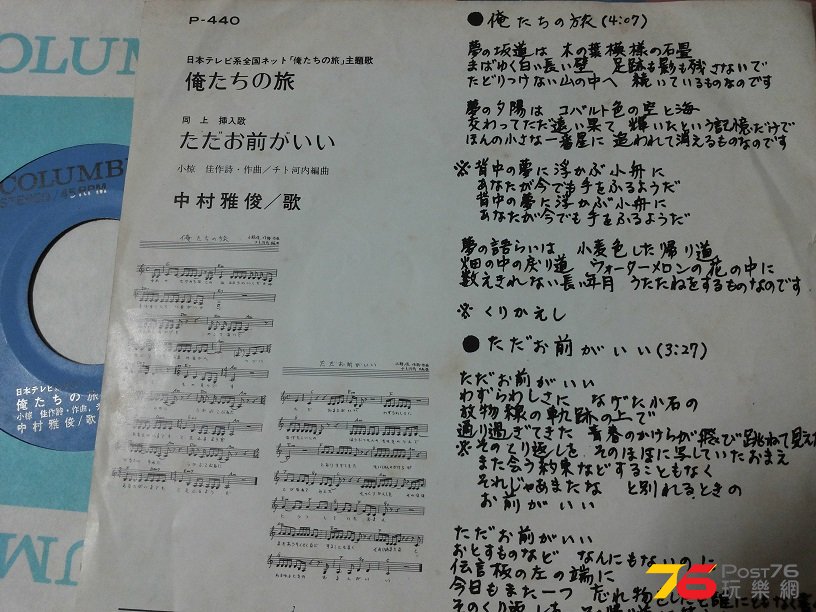 OLUM
COLUMB
STEREO/45RPM
日本テレビ系
俺たちの旅
小椋 佳作詩・作曲
中村雅俊/歌
UM
P-440
日本テレビ系全国ネット「俺たちの旅」主題歌
俺たちの旅
同上 挿入歌
ただお前がいい
小椋 佳作詩・作曲/チト河内編曲
中村雅俊/歌
俺たちの旅
ただお前がいい
●俺たちの旅(4:07)
夢の坂道は 木の葉模様の石畳
まばゆく白い長い壁 足跡も影も残さないで
たどりつけない山の中へ 続いているものなのです
夢の夕陽は コバルト色の空と海
交わってただ遠い果て 輝いたという記憶だけで
ほんの小さな一番星に 追われて消えるものなのです
※背中の夢に浮かぶ小舟に
あなたが今でも手をふるようだ
背中の夢に浮かぶ小舟に
あなたが今でも手をふるようだ
夢の語らいは 小麦色した帰り道
畑の中の戻り道 ウォーターメロンの花の中に
数えきれない長い年月 うたたねをするものなのです
※くりかえし
●ただお前がいい(3:27)
ただお前がいい
わずらわしさに なげた小石の
放物線の軌跡の上で
通り過ぎてきた 青春のかけらが飛び跳ねて見え
※そのてり返しを そのほほに写していたおまえ
また会う約束などすることもなく
それじゃあまたな と別れるときの
お前がいい
ただお前がいい
おとすものなど なんにもないのに
伝言板の左の端に
今日もまた一つ だれ物
そのくり返しを
76 Post76
玩樂網